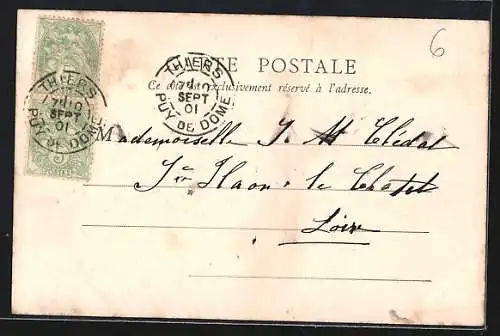 6
CARTE POSTALE
Ce côté est exclusivement réservé à l'adresse.
THIERS
7
SEPT
01
PUY DE DOME
THIERS
7
SEPT
01
PUY DE DOME
5
POSTES
Mademoiselle J. M. Clédat
St Haon-le Chatel
Loire